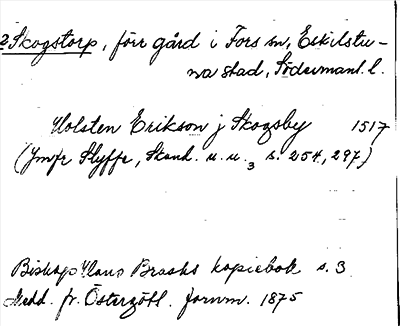 2 Skogstorp, förr gård i Fors sn, Eskilstu-
na stad, Södermanl. l.
Holsten Erikson j Skogsby 1517
(Jmfr Styffe, Skand. u. u.3 s. 254, 297)
Biskop Hans Brasks kopiebok s. 3
Medd. fr. Östergötl. fornm. 1875